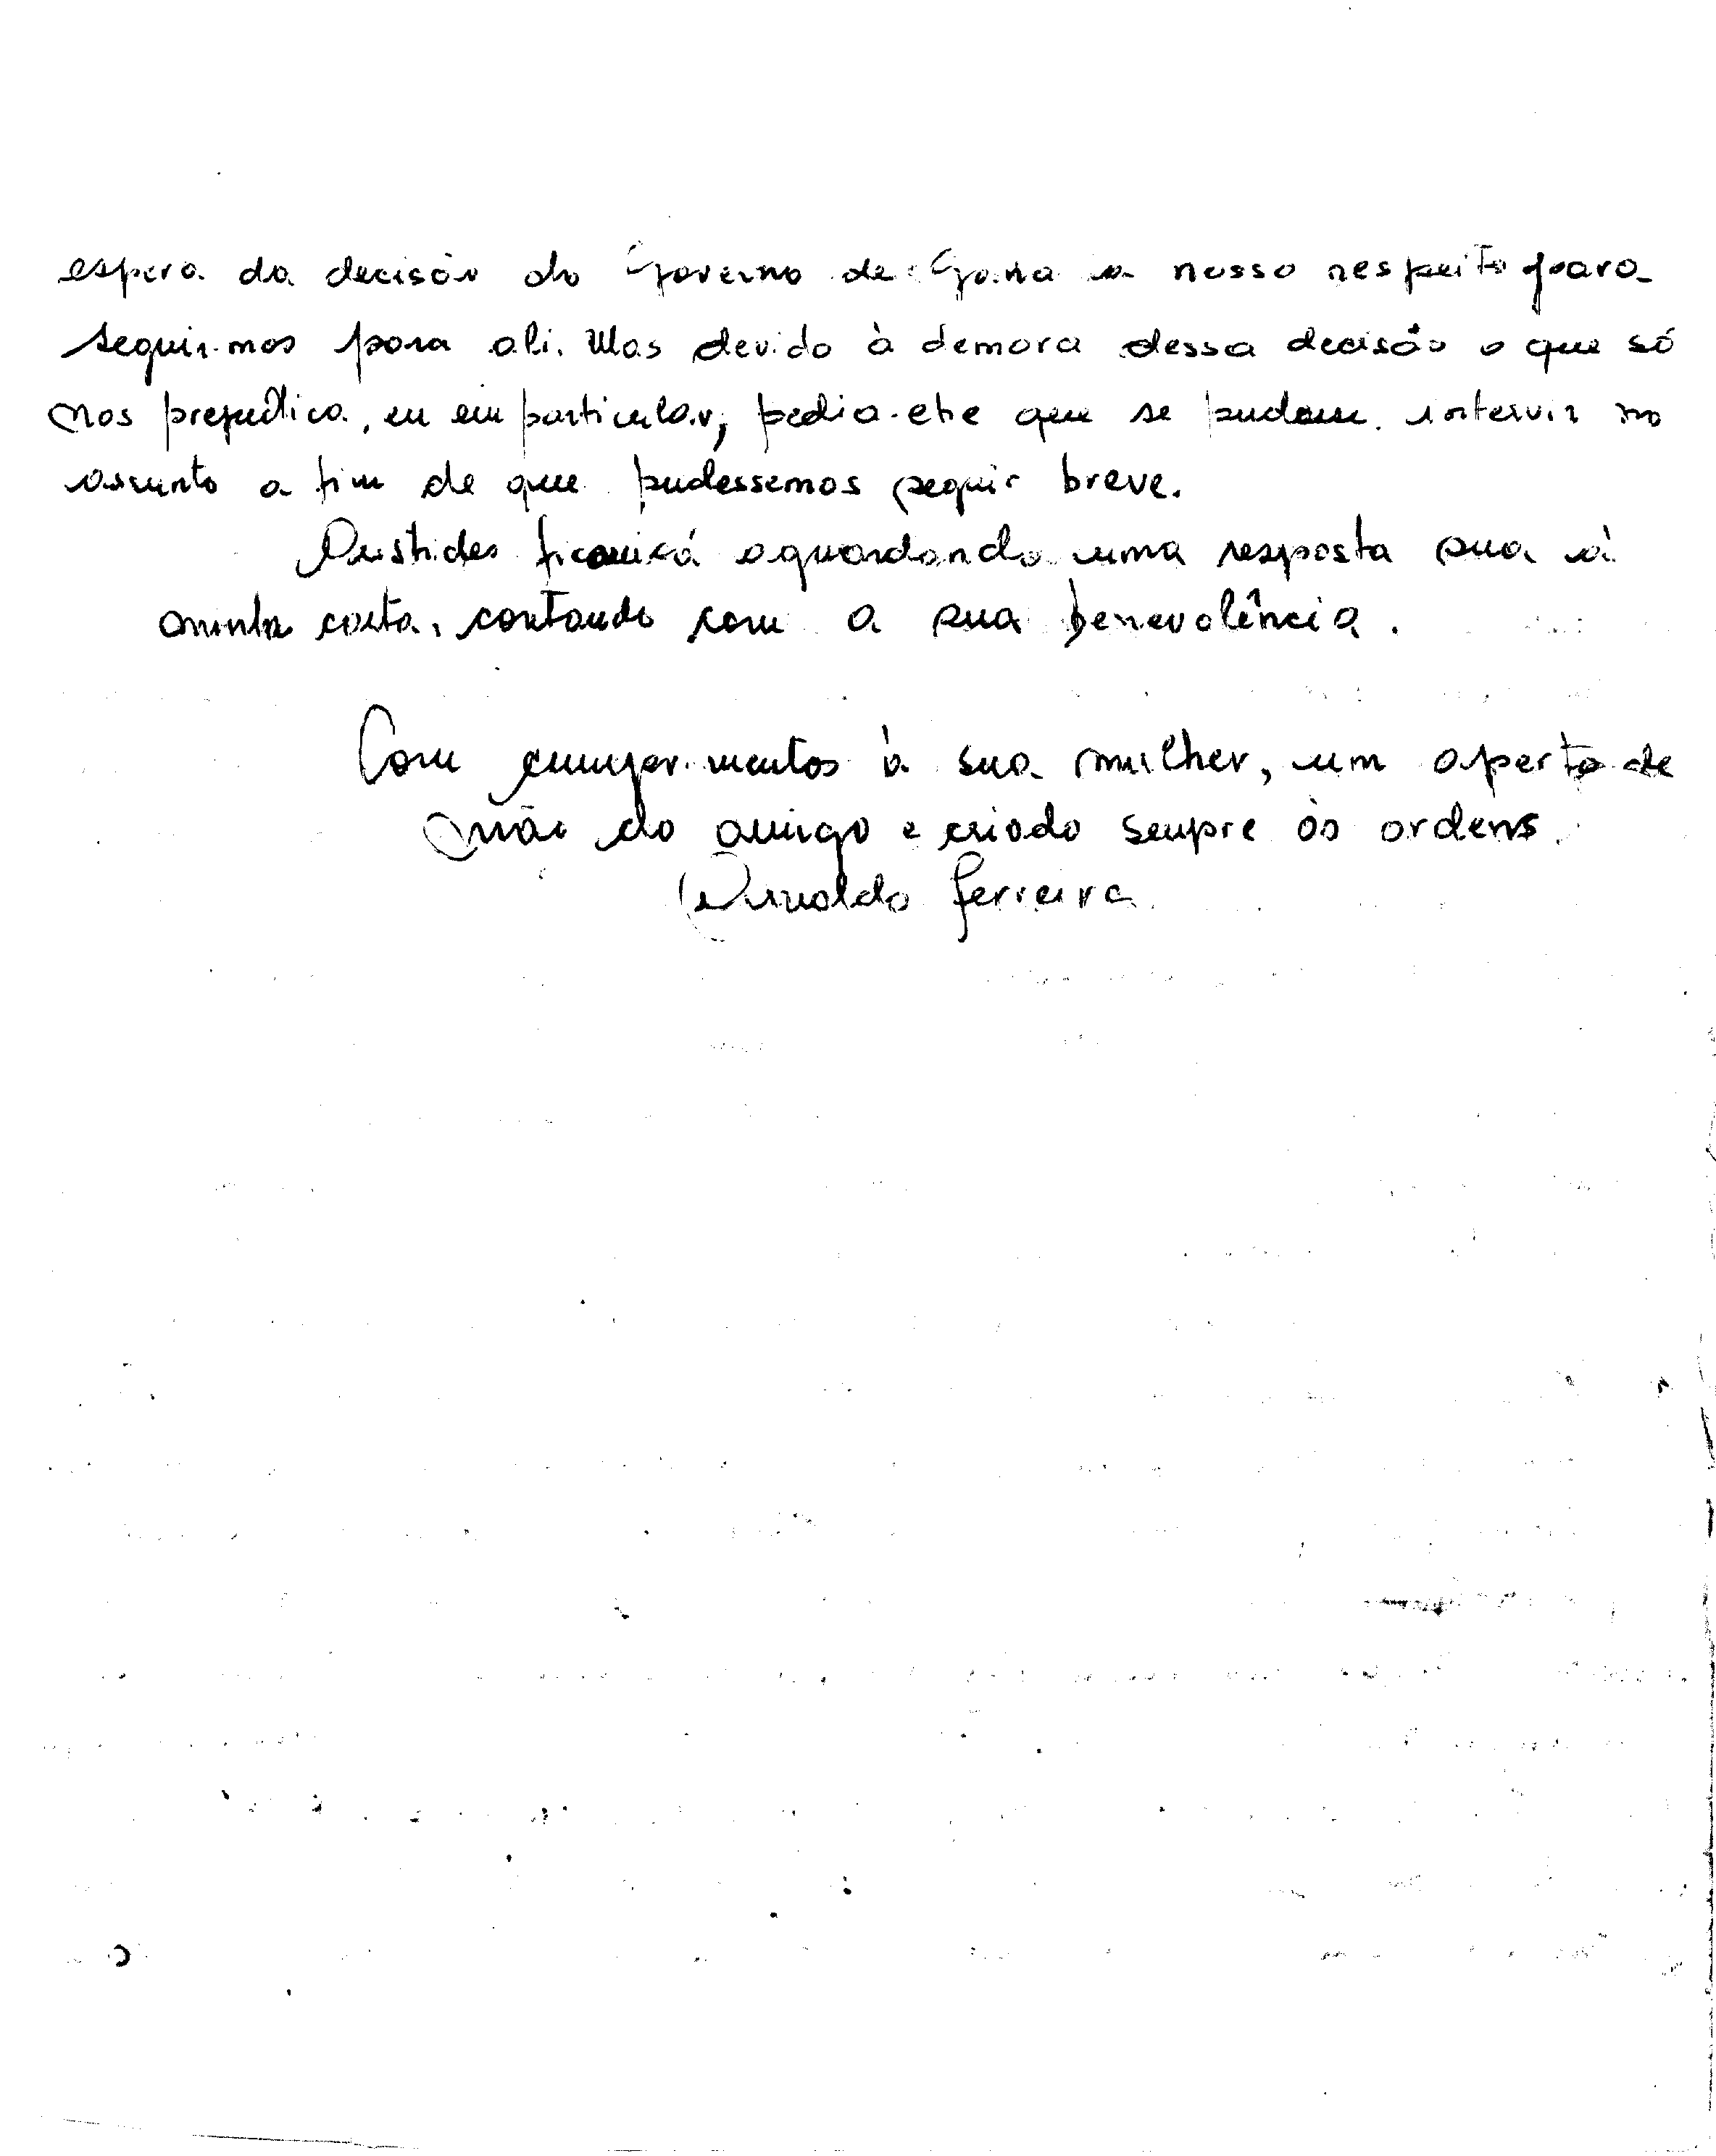 espera da decisão do Governo de Gana a nosso respeito para
seguirmos para ali. Mas devido à demora dessa decisão o que só
nos prejudica, eu em particular, pedia-lhe que se pudesse intervir no
assunto a fim de que pudessemos seguir breve.
Aristides ficará aguardando uma resposta sua à
minha carta, contando com a sua benevolência.
Com cumprimentos à sua mulher, um aperto de
mão do amigo e criado sempre às ordens.
Arnaldo Ferreira